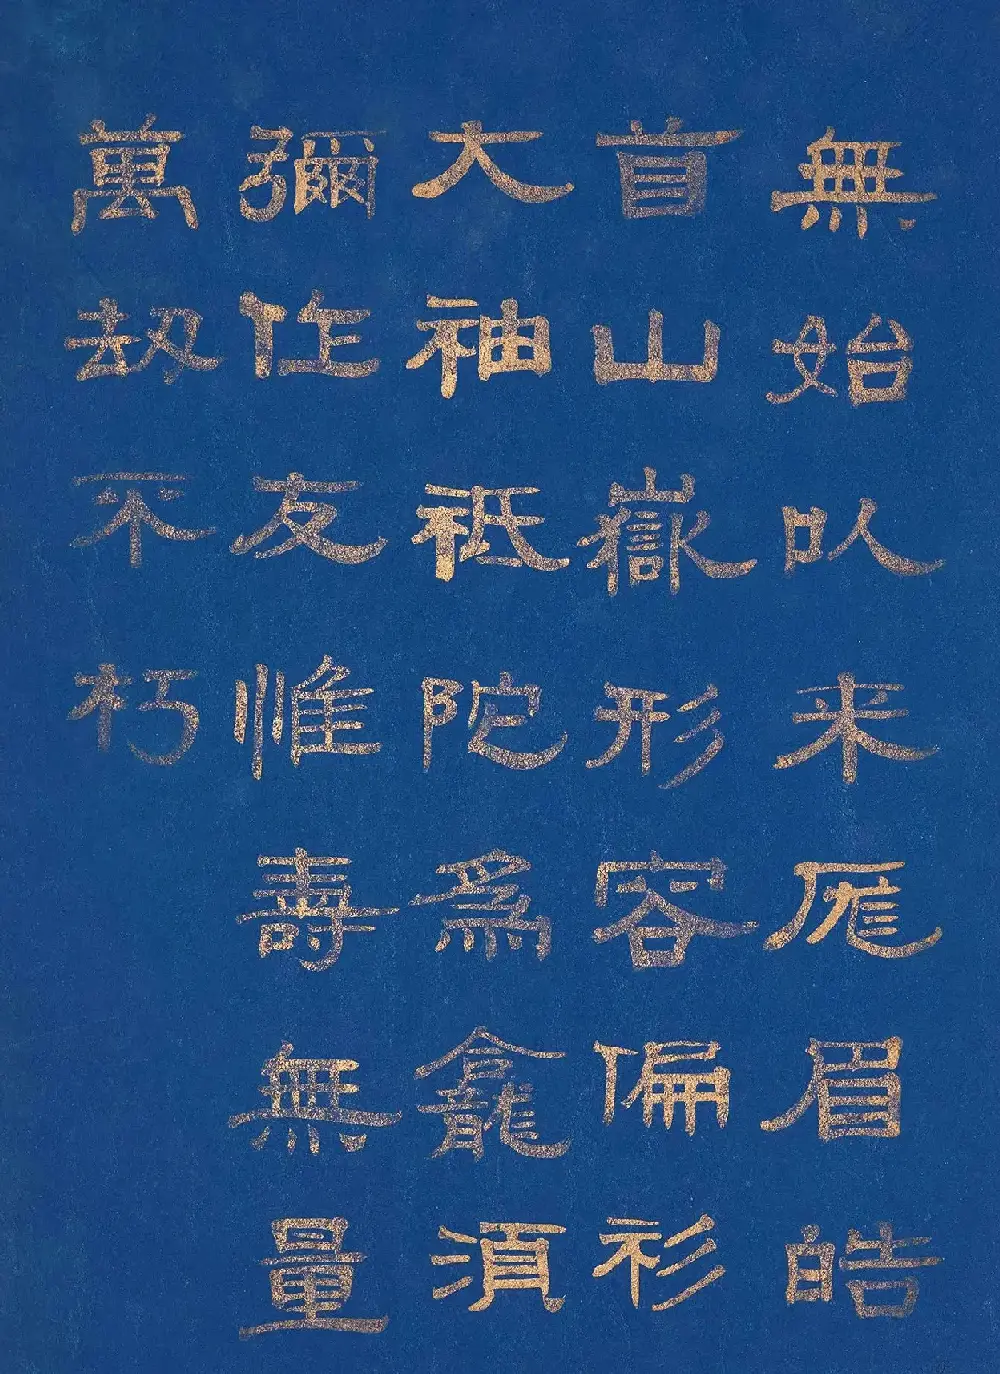 無始以来厖眉皓
首山嶽形容偏衫
大袖祇陀爲龕須
彌作友惟壽無量
萬刼不朽